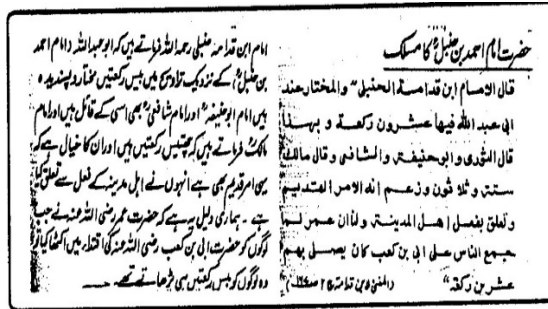 حضرت امام احمد بن حنبلؒ کا مسلک
قال الامام ابن قدامة الحنبلیؒ والمختار عند
ابی عبد الله فیها عشرون رکعة و بهذا
قال الثوری و ابو حنیفة والشافعی وقال مالک
ستة و ثلاثون وزعم انه الامر القدیم
وتعلق بفعل اهل المدینة ولنا ان عمر لما
جمع الناس علی ابی بن کعب کان یصلی بهم
عشرین رکعة"
امام ابن قدامہ حنبلی رحمہ اللہ فرماتے ہیں کہ ابو عبداللہ (امام احمد
بن حنبلؒ) کے نزدیک تراویح میں بیس رکعتیں مختار و پسندیدہ
ہیں امام ابو حنیفہؒ اور امام شافعیؒ بھی اسی کے قائل ہیں اور امام
مالکؒ فرماتے ہیں کہ چھتیس رکعتیں ہیں اور ان کا خیال ہے کہ
یہی امر قدیم بھی ہے انہوں نے اہل مدینہ کے فعل سے تعلق کیا
ہے۔ ہماری دلیل یہ ہے کہ حضرت عمر رضی اللہ عنہ نے جب
لوگوں کو حضرت ابی بن کعب رضی اللہ عنہ کی اقتداء میں اکٹھا کیا تو
وہ لوگوں کو بیس رکعتیں ہی پڑھاتے تھے۔